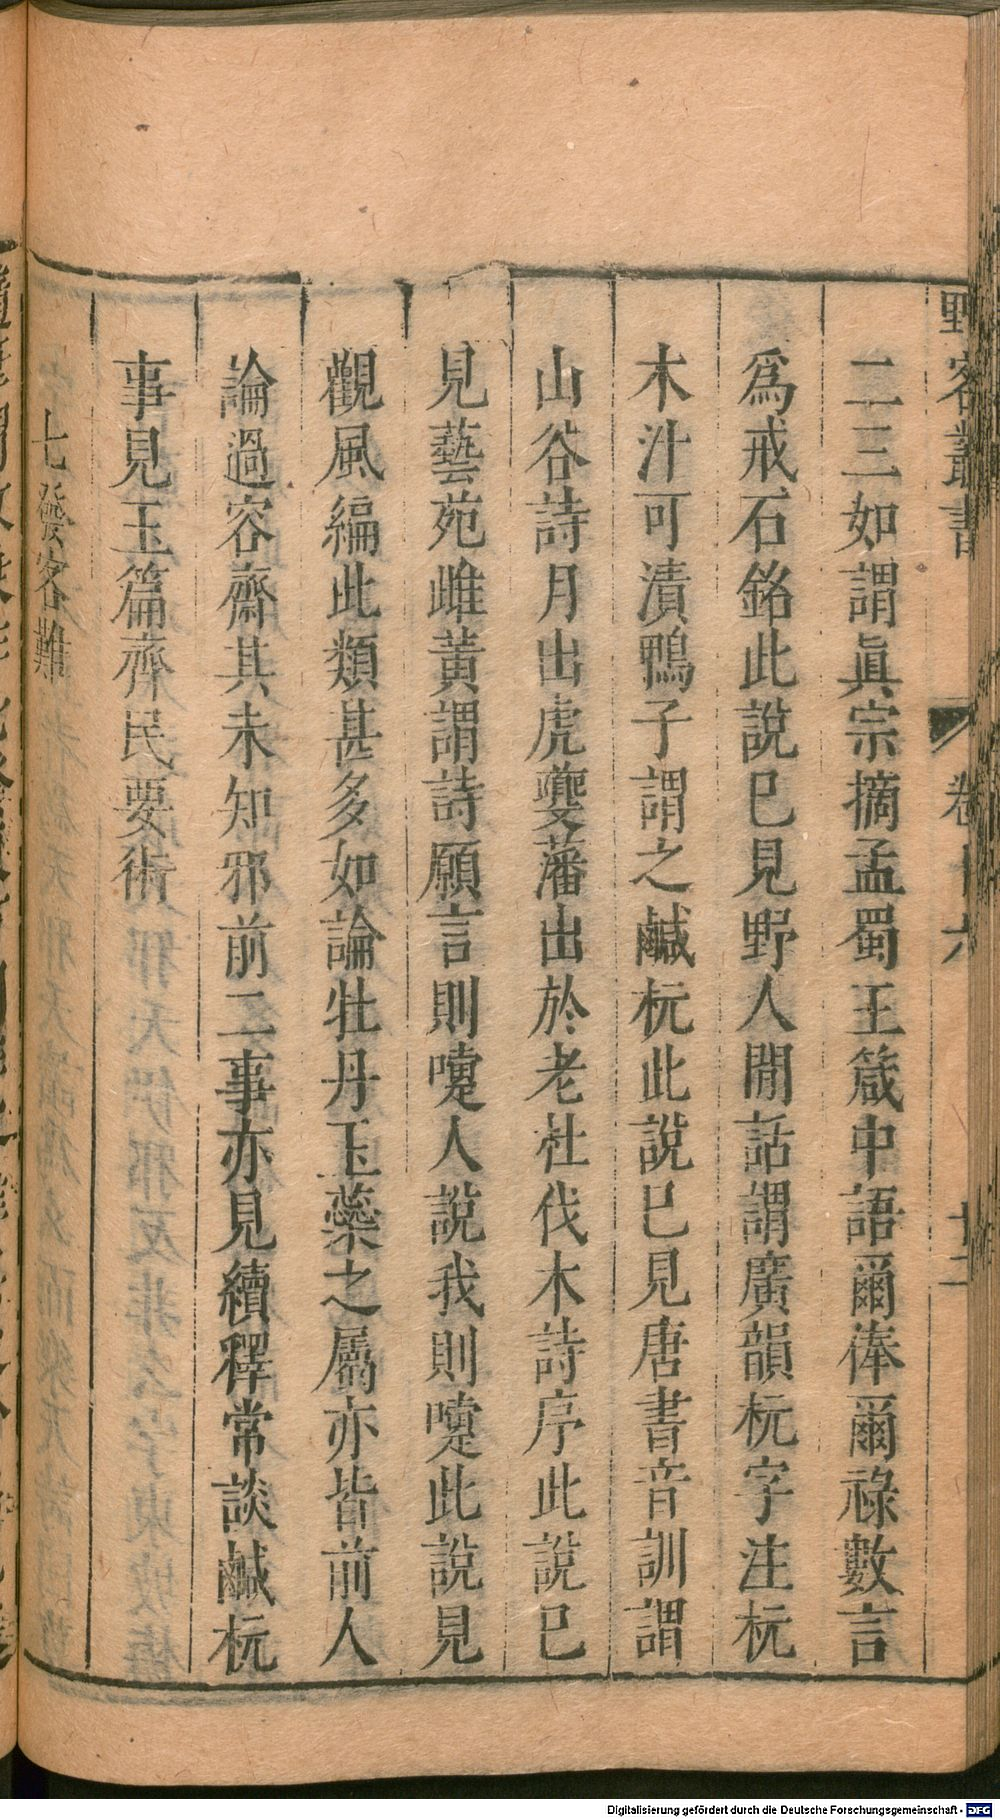 野客叢書
卷十六
二三如謂眞宗摘孟蜀王箴中語爾俸爾祿數言
爲戒石銘此說已見野人閒話謂廣韻杬字注杬
木汁可漬鴨子謂之鹹杬此說已見唐書音訓謂
山谷詩月出虎夔藩出於老杜伐木詩序此說已
見藝苑雌黃謂詩願言則嚔人說我則嚔此說見
觀風編此類甚多如論牡丹玉蘂之屬亦皆前人
論過容齋其未知邪前二事亦見續釋常談鹹杬
事見玉篇齊民要術
七發客難
Digitalisierung gefördert durch die Deutsche Forschungsgemeinschaft - DFG